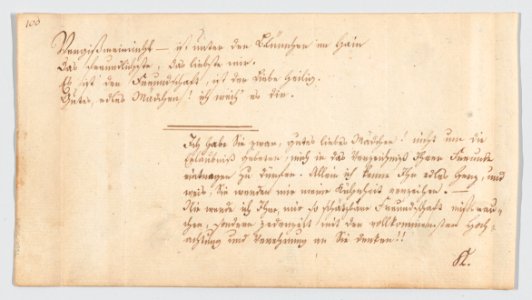 100
Vergißmeinnicht — ist unter den Blümchen im Hain
Das freundlichste, das liebste mir.
Es ist der Freundschaft, ist der Liebe heilig.
Gutes, edles Mädchen! ich weih' es dir.
Ich habe Sie zwar, gutes liebes Mädchen! nicht um die
Erlaubniß gebeten, mich in das Verzeichniß Ihrer Freunde
eintragen zu dürfen. Allein ich kenne Ihr edles Herz, und
weis, Sie werden mir meine Kühnheit verzeihen. —
Nie werde ich Ihre, mir so schätzbare Freundschaft mißbrau-
chen, sondern jederzeit mit der vollkommensten Hoch-
achtung und Verehrung an Sie denken!!